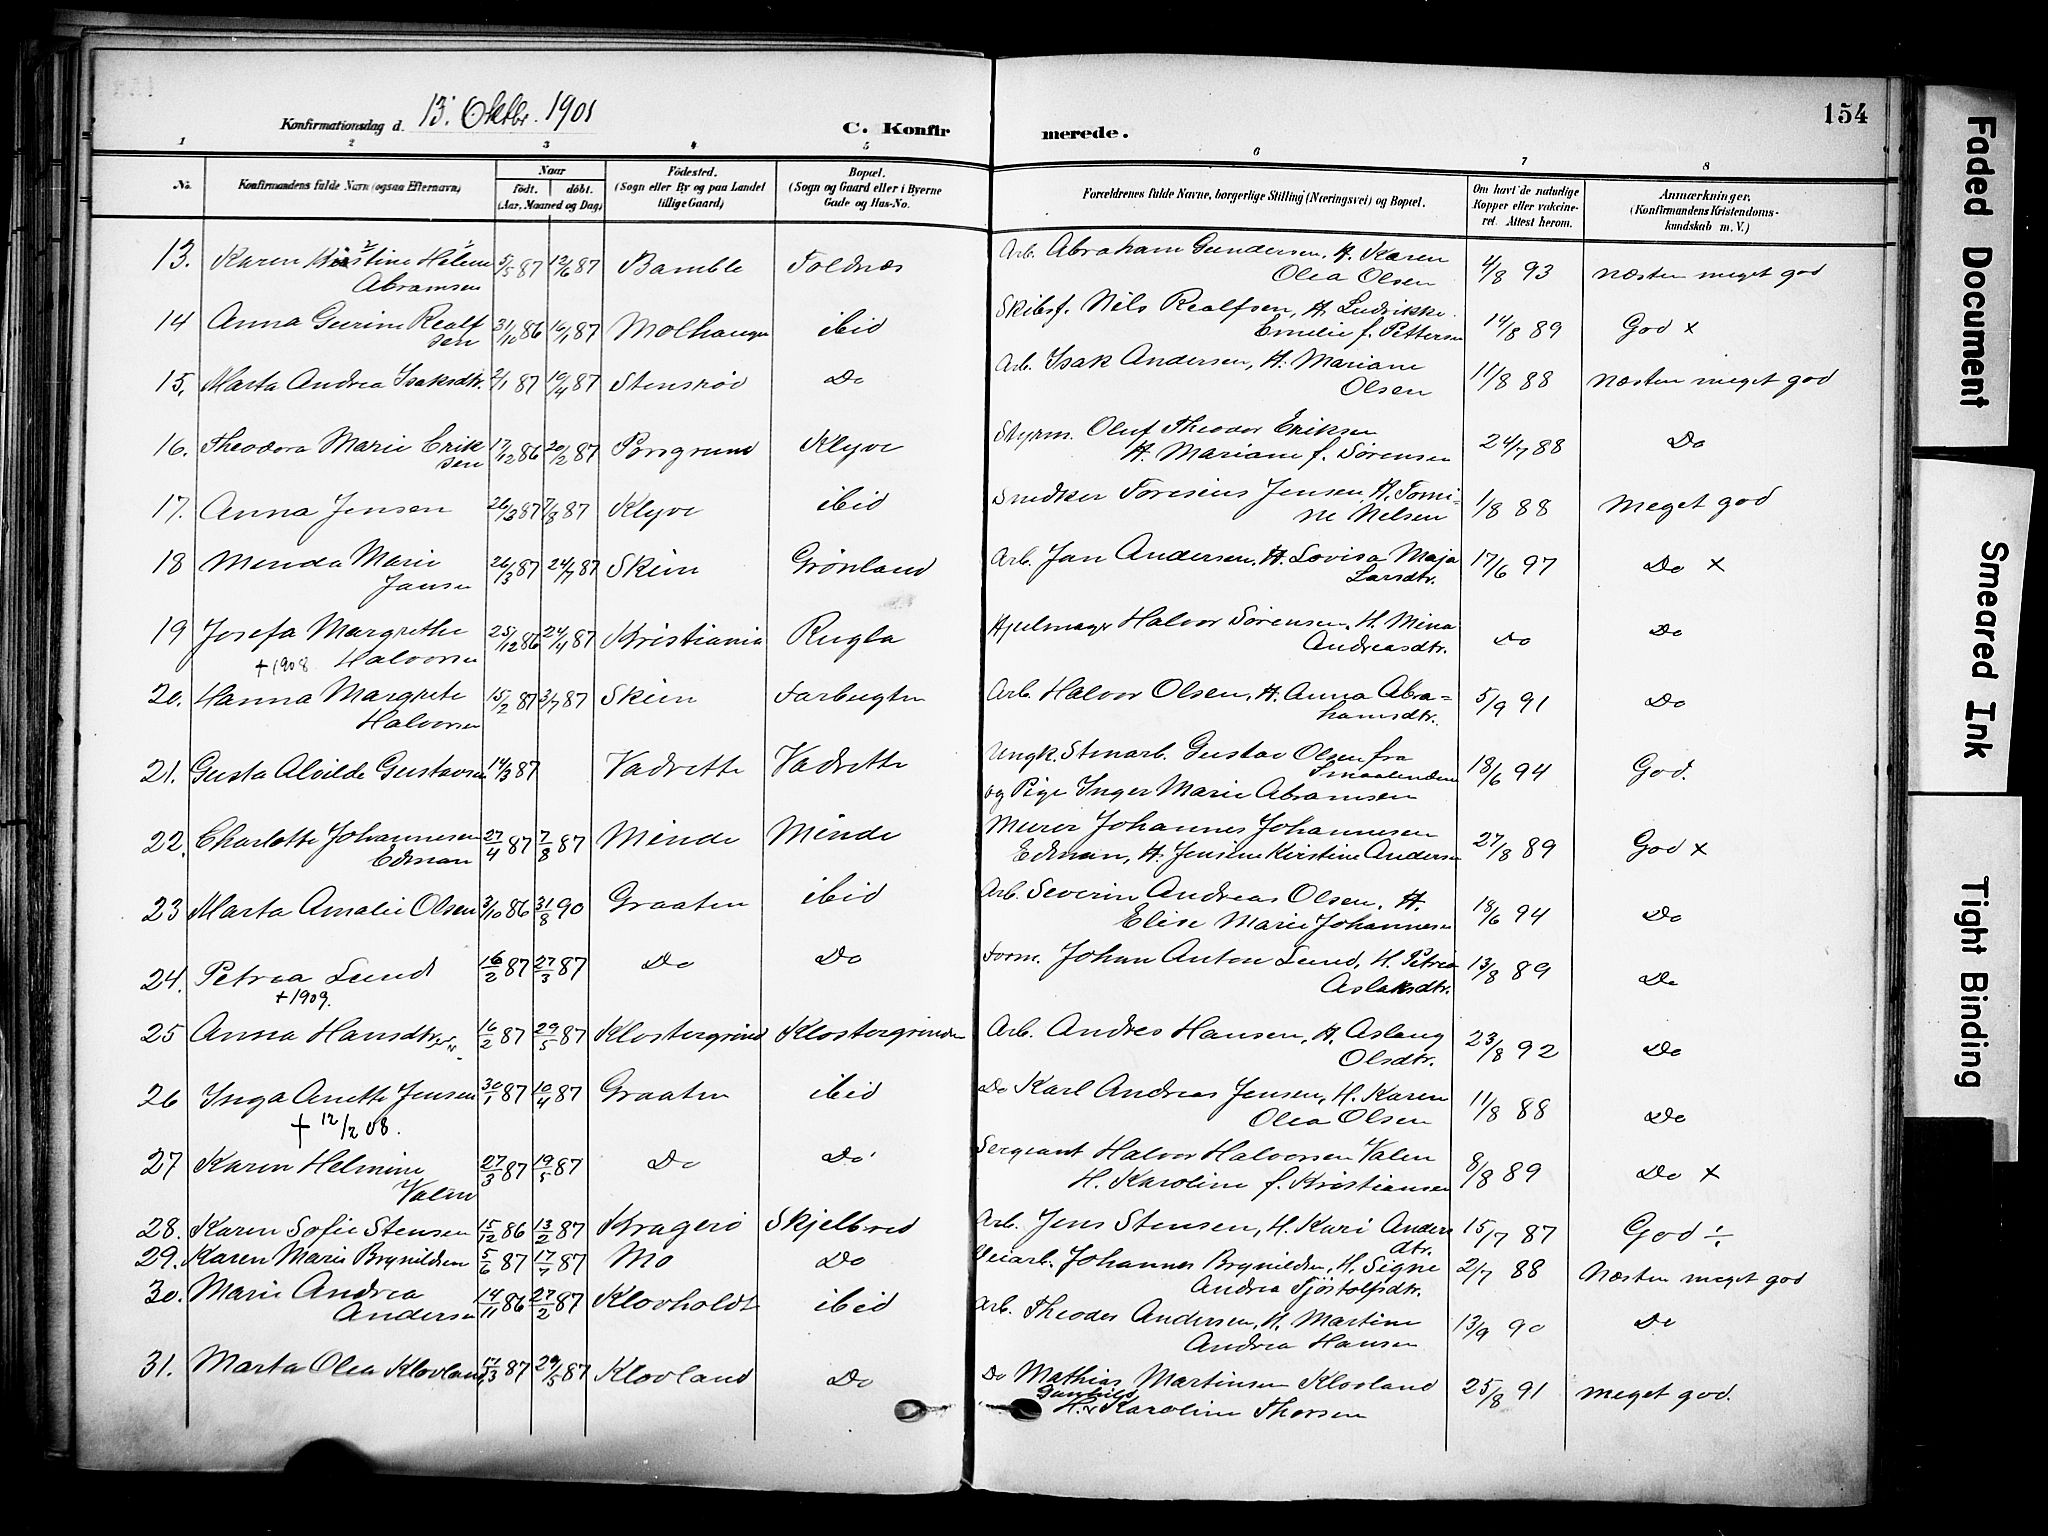 Konfirmationsdag d. 13. Oktbr. 1901
C. Konfir merede. 154
1 2 3 4 5 6 7 8
No. Konfirmandens fulde Navn (ogsaa Efternavn) Naar født. døbt. (Aar, Maaned og Dag) Fødested. (Sogn eller By og paa Landet tillige Gaard) Bopæl. (Sogn og Gaard eller i Byerne Gade og Hus-No. Forældrenes fulde Navne, borgerlige Stilling (Næringsvei) og Bopæl. Om havt de naturlige Kopper eller vakcineret. Attest herom. Anmærkninger. (Konfirmandens Kristendomskundskab m. V.)
13. Karen Kristine Helene 5/5 87 12/6 87 Bamble Foldnæs Arb. Abraham Gundersen, H. Karen 4/8 93 Næsten meget god
Abramsen Olea Olsen
14 Anna Gurine Realf 31/10 86 10/1 87 Molhaugen ibid Skibsf. Nils Realfsen, H. Ludvikke 14/8 89 God x
sen Emelie f. Pettersen
15. Marta Andrea Isaksdtr. 2/1 87 10/4 87 Stensrød Do Arb. Isak Andersen, H. Mariane 11/8 88 Næsten meget god
Olsen
16. Theodora Marie Erik 17/12 86 20/2 87 Porsgrund Klyve Styrm. Oluf Theodor Eriksen 24/7 88 Do
sen H. Mariane f. Sørensen
17. Anna Jensen 26/3 87 7/8 87 Klyve ibid Snedker Jensen, H. Tomi= 1/8 88 Meget god
ne Nelsen
18 Menda Marie 26/3 87 24/7 87 Skien Grønland Arb. Jan Andersen, H. Lovisa Maja 17/6 97 Do x
Jansen Larsdtr.
19 Josefa Margrethe 25/12 86 24/4 87 Kristiania Rugla Hjulmager Halvor Sørensen, H. Mina Do Do
+1908 Halvorsen Andreasdtr.
20. Hanna Margrete 15/2 87 3/7 87 Skien Farbugten Arb. Halvor Olsen, H. Anna Abra= 5/9 91 Do
Halvorsen hamsdtr.
21. Gusta Alvilde Gustavsen 14/3 87 Vadrette Vadrette Ungk. Stenarb. Gustav Olsen fra 18/6 94 God.
Smaalenene
og Pige Inger Marie Abramsen
22. Charlotte Johannesen 27/4 87 7/8 87 Minde Minde Murer Johannes Johannesen 27/8 89 God x
Edman Edman, H. Jensine Kirstine Andersen
23 Marta Amalie Olsen 3/10 86 31/8 90 Graaten ibid Arb. Severin Andreas Olsen, H. 18/6 94 Do
Elise Marie Johannesen
24. Petrea Lund 16/2 87 27/3 87 Do Do Form. Johan Anton Lund, H. Petrea 13/8 89 Do
+1909. Aslaksdtr.
25 Anna Hansdtr. 16/2 87 29/5 87 Klostergrind Klostergrinden Arb. Andres Hansen, H. Aslaug 23/8 92 Do
Olsdtr.
26 Inga Anette Jensen 30/1 87 10/4 87 Graaten ibid Do Karl Andreas Jensen, H. Karen 11/8 88 Do
+ 12/2 08. Olea Olsen
27 Karen Helmine 27/3 87 19/5 87 Do Do Sergeant Halvor Halvorsen Valen 8/8 89 Do x
Valen H. Karoline f. Kristiansen
28. Karen Sofie Stensen 15/12 86 13/2 87 Kragerø Skjelbred Arb. Jens Stensen, H. Kari Anders 15/7 87 God ÷
dtr.
29. Karen Marie Brynildsen 5/6 87 17/7 87 Mo Do Veiarb. Johannes Brynildsen, H. Signe 2/7 88 Næsten meget god
Andrea Tjöstolfsdtr.
30. Marie Andrea 14/11 86 27/2 87 Klovholdt ibid Arb. Theodor Andersen, H. Martine 13/9 90 Do
Andersen Andrea Hansen
31. Marta Olea Klovland 17/3 87 29/5 87 Klovland Do Do Mathias Martinsen Klovland 25/8 91 meget god.
Gunhild
H. Karoline Thorsen
Faded Document
Smeared Ink
Tight Binding